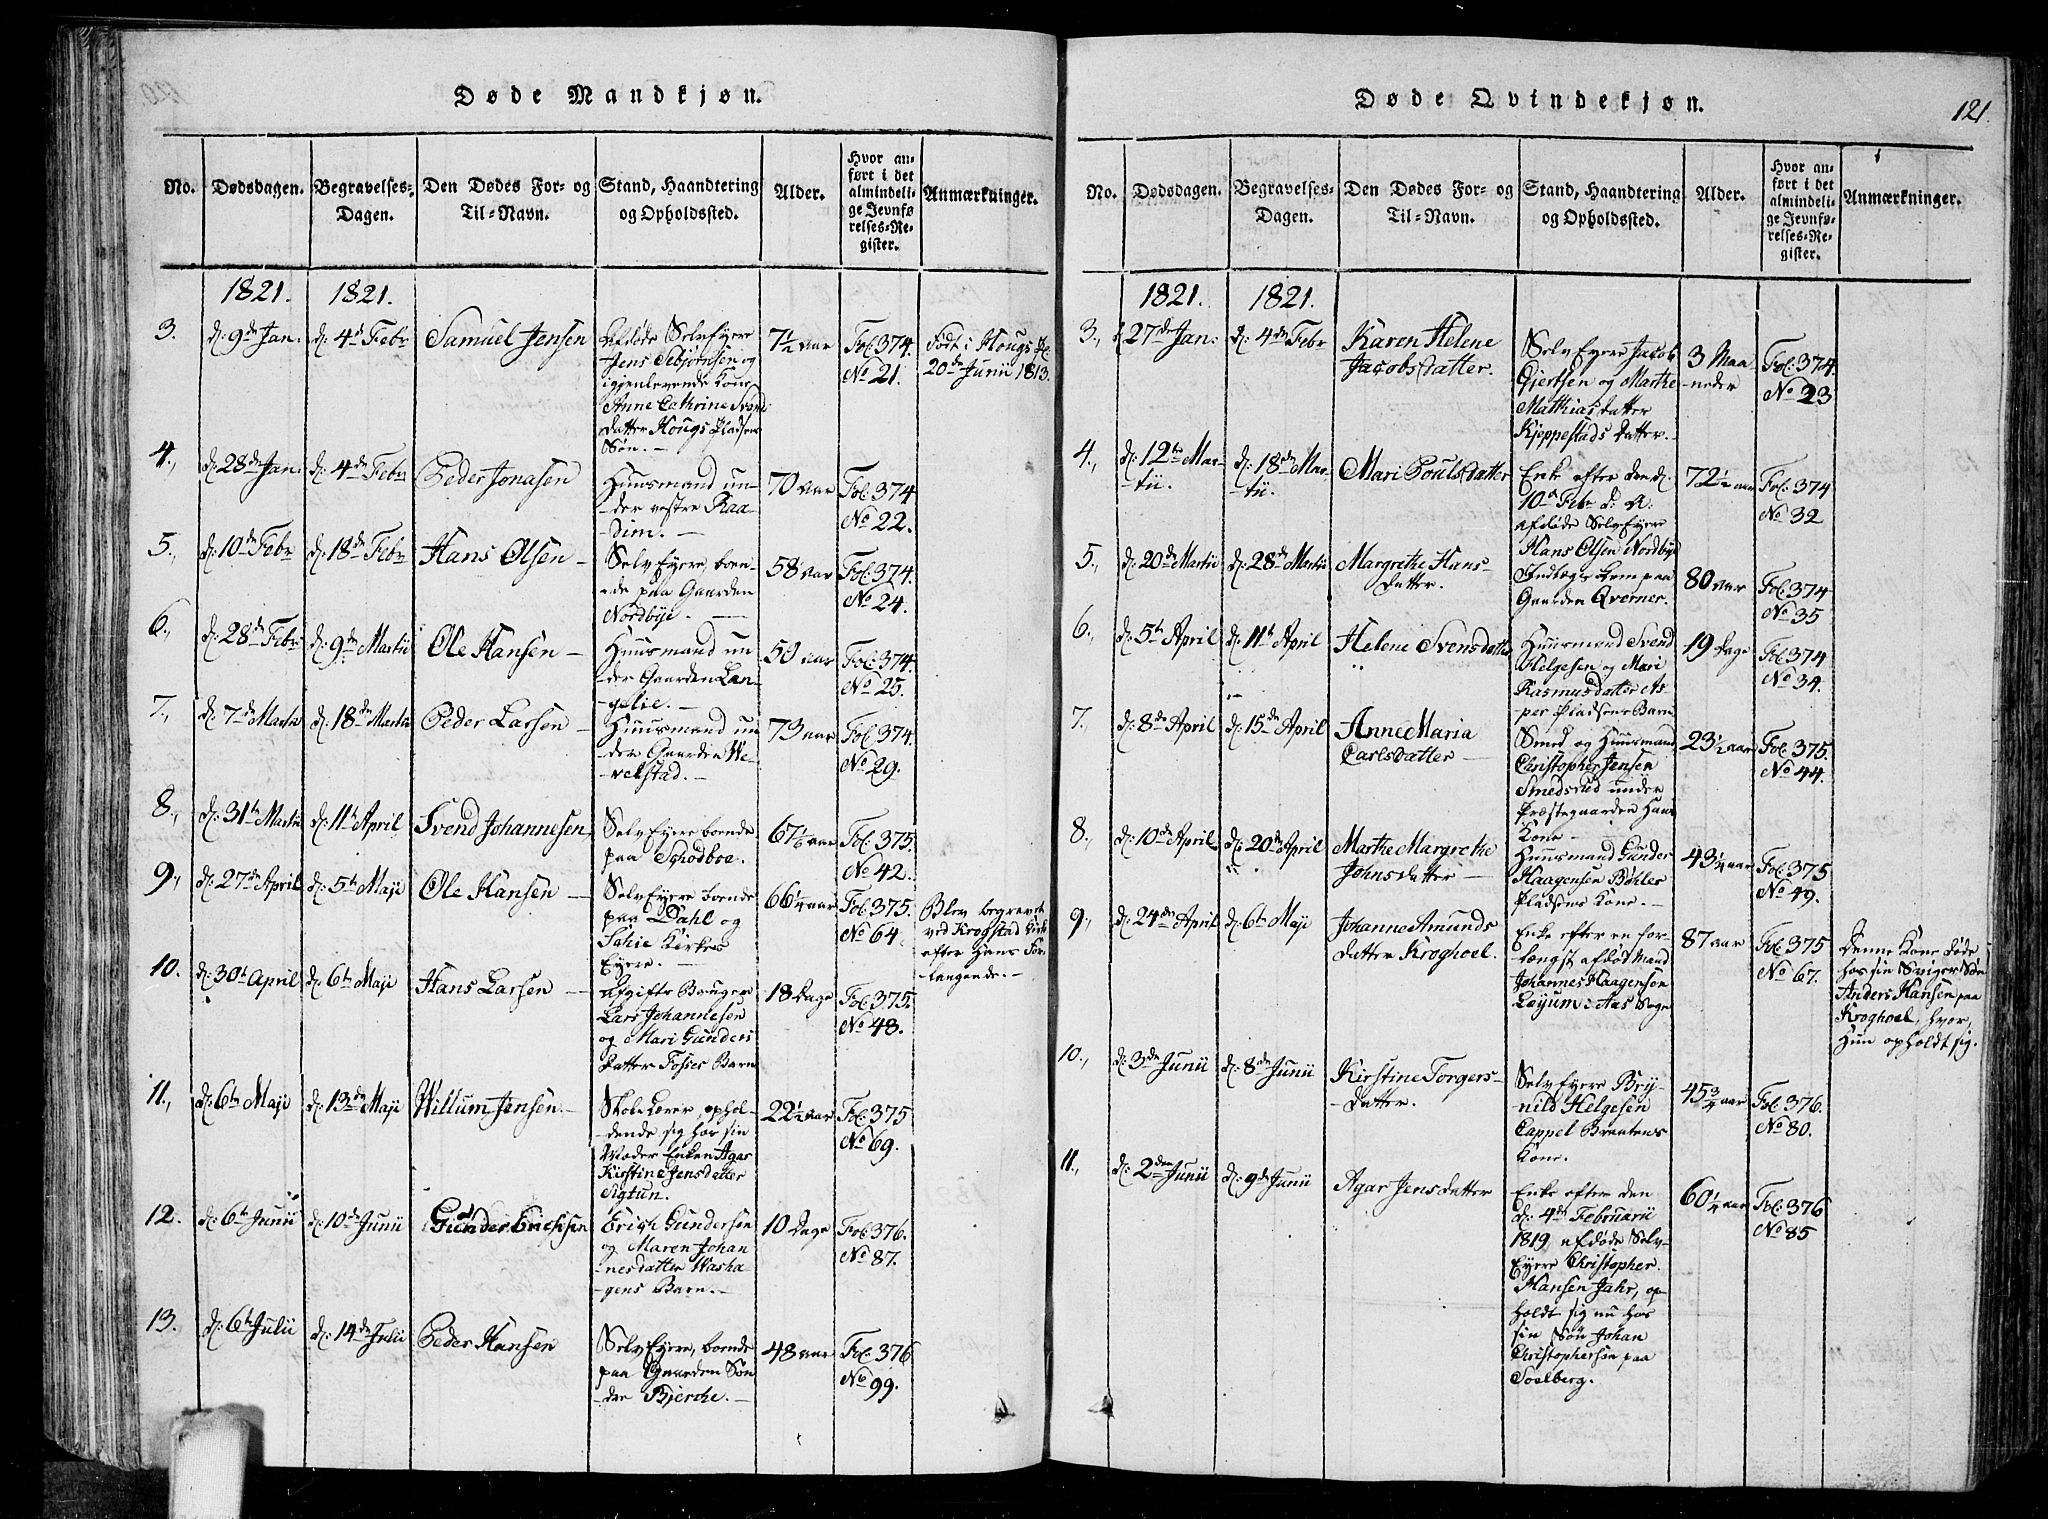 Døde Mandkjøn.
No.
Dødsdagen.
Begravelses-
Dagen.
Den Dødes For- og
Til-Navn.
Stand, Haandtering
og Opholdssted.
Alder.
Hvor an-
ført i det
almindeli-
ge Jevnfø
relses-Re-
gister.
Anmærkninger.
1821. 1821.
3. d: 9de Jan. d: 4de Febr Samuel Jensen
Afdøde SelvEyere
Jens Sebjørnsen og
igjenlevende Kone
Anne Cathrine Svends
datter Hougs Pladsens
Søn. -
7½ aar
Fol: 374.
No 21.
Født i Hougs Pl.
20de Junii 1813.
4., d: 28de Jan. d: 4de Febr Peder Jonasen
Huusmand un-
-der vestre Raa-
-dim. -
70 aar
Fol: 374
No 22.
5., d: 10de Febr d: 18de Febr Hans Olsen -
SelvEyere, boen-
-de paa Gaarden
Nordbye. -
58 aar
Fol: 374.
No 24.
6., d: 28de Febr d: 9de Martii Ole Hansen -
Huusmand un
-der Gaarden Lan-
-gelie. -
50 aar
Fol: 374.
No 25.
7., d: 7de Martii d: 18de Martii Peder Larsen -
Huusmand un
-der Gaarden We-
-velstad. -
73 aar
Fol: 374.
No 29.
8., d: 31te Martii d: 11te April Svend Johannesen,
SelvEyere boende
paa Schodboe.
67⅙ aar
Fol: 375.
No 42.
9., d: 27de April d: 5te Maji Ole Hansen -
SelvEyere boende
paa Dahl og
Schie Kirkes
Eyere. -
66¼ aar
Fol: 375.
No 64.
Blev begravet
ved Krogstad Kirke
efter Hans For-
langende. -
10. d: 30te April d: 6te Maji Hans Larsen -
Afgifts Bruger
Lars Johannesen
og Mari Gunders
datter Fosses Barn
18 Dage
Fol: 375.
No 48.
11., d: 6te Maji d: 13de Maji Willum Jensen -
SkoleLærer, ophol-
-dende sig hos sin
Moder Enken Agar
Kirstine Jensdatter
Sigtun.
22½ aar
Fol: 375
No 69.
12. d: 6te Junii d: 10de Junii Gunder Erichsen
Erich Gundersen
og Maren Johan
-nesdatter Washa
-gens Barn. -
10 Dage
Fol: 376.
No 87.
13. d: 6te Julii d: 14de Julii Peder Hansen
SelvEyere, boende
paa Gaarden Søn
dre Bjerche. -
48 aar
Fol: 376
No 99.
Døde Qvindekjøn.
121.
No.
Dødsdagen.
Begravelses-
Dagen.
Den Dødes For- og
Til-Navn.
Stand, Haandtering
og Opholdssted.
Alder.
Hvor an-
ført i det
almindeli-
ge Jevnfø-
relses-Re-
gister.
Anmærkninger.
1821. 1821.
3., d: 27de Jan: d: 4de Febr Karen Helene
Jacobsdatter.
SelvEyere Jacob
Gjertsen og Marthe
Mathiasdatter
Kjeppestads datter. -
3 Maa-
neder
Fol: 374.
No 23
4., d: 12te Mar-
tii.
d: 18de Mar-
tii.
Mari Poulsdatter
Enke efter den d:
10de Febr d: A:
afdøde SelvEyere
Hans Olsen Nordbye
72½ aar
Fol: 374
No 32
5., d: 20de Martii d: 28de Martii Margrethe Hans-
datter.
Indlægs Lem paa
Gaarden Qverner.
80 aar
Fol: 374
No 35
6., d: 5te April d: 11te April Helene Svensdatter
Huusmand Svend
Helgesen og Mari
Rasmusdatter As-
per Pladsens Barn
19 Dage
Fol: 374
No 34.
7., d: 8de April d: 15de April Anne Maria
Carlsdatter -
Smed og Huusmand
Christopher Jensen
Smedsrud under
Præstegaarden Hans
Kone -
23½ aar
Fol: 375.
No 44.
8., d: 10de April d: 20de April Marthe Margrethe
Johnsdatter -
Huusmand Gunder
Haagensen Bøhler
Pladsens Kone. -
43¼ aar
Fol: 375
No 49.
9., d: 24de April d: 6te Maji Johanne Amunds
datter Kroghoel.
Enke efter en for-
længst afdød Mand
Johannes Haagensen
Løyum i Aas Sogn
87 aar
Fol: 375
No 67.
Denne Kone døde
hos sin Sviger Søn
Anders Hansen paa
Kroghoel, hvor
Hun opholdt sig.
10., d: 3de Junii d: 8de Junii Kirstine Torgers-
datter.
SelvEyere Bry-
nild Helgesen
Cappel Braatens
Kone.
45¾ aar
Fol: 376.
No 80.
11., d: 2den Junii d: 9de Junii Agar Jensdatter
Enke efter den
d: 4de Februarii
1819 afdøde Selv-
Eyere Christopher
Hansen Jahr, op-
holdt sig nu hos
sin Søn Johan
Christophersen paa
Soelberg.
60¼ aar
Fol: 376
No 85